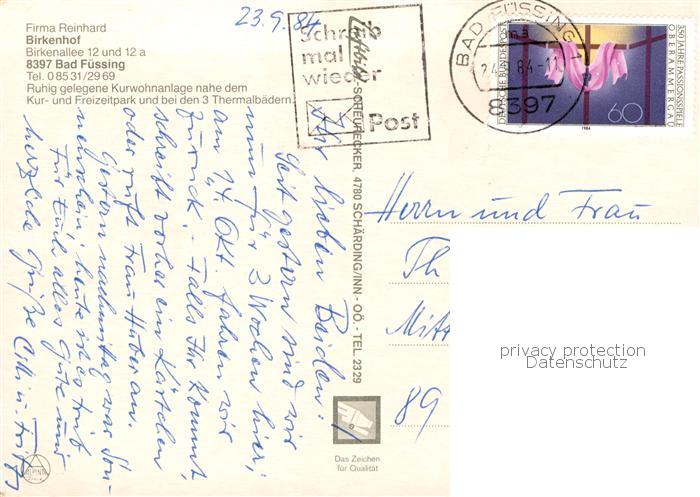 Firma Reinhard
Birkenhof
Birkenallee 12 und 12 a
8397 Bad Füssing
Tel. 0 85 31/29 69
Ruhig gelegene Kurwohnanlage nahe dem
Kur- und Freizeitpark und bei den 3 Thermalbädern.
23.9.84
Ihr lieben Beiden!
Seit gestern sind wir
nun für 3 Wochen hier,
am 14. Okt. fahren wir
zurück. – Falls Ihr kommt
schreibt vorher ein Kärtchen
oder ruft Frau Huber an.
Gestern nachmittag war Son-
nenschein, heute ist es trüb
Für Euch alles Gute und
herzliche Grüße
ALPINA
Luftbild SCHEURECKER, 4780 SCHÄRDING/INN - OÖ. - TEL. 2329
Das Zeichen
für Qualität
Schreib
mal
wieder
Post
BAD FÜSSING 1
84-11
8397
DEUTSCHE BUNDESPOST
350 JAHRE PASSIONSSPIELE
OBERAMMERGAU
60
1984
Herrn und Frau
Th
Mitt
89
privacy protection
Datenschutz